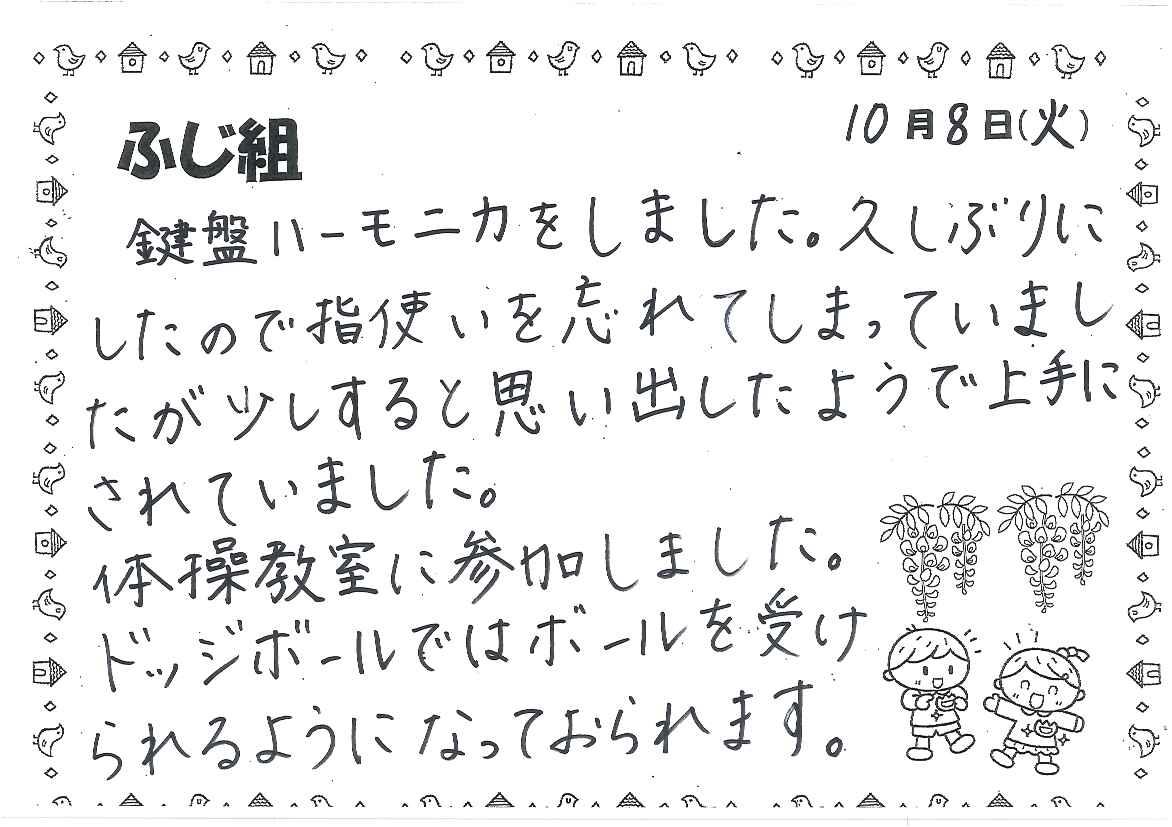 ふじ組
10月8日(火)
鍵盤ハーモニカをしました。久しぶりに
したので指使いを忘れてしまっていまし
たが少しすると思い出したようで上手に
されていました。
体操教室に参加しました。
ドッジボールではボールを受け
られるようになっておられます。